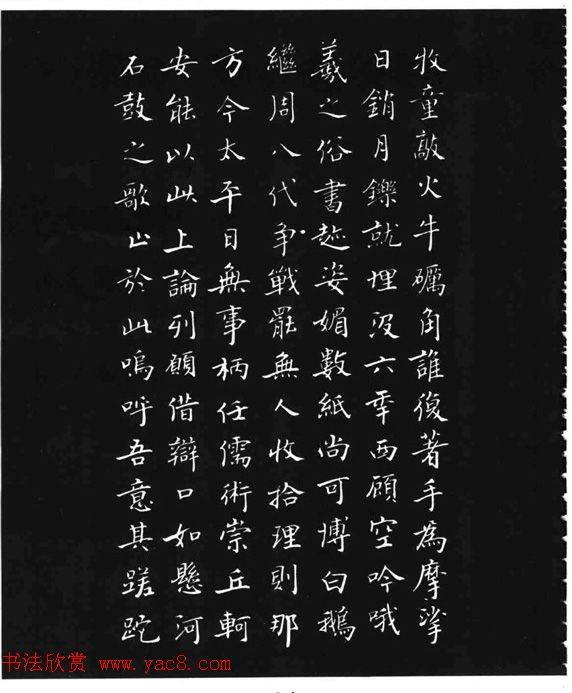 牧童敲火牛礪角誰復著手為摩挲
日銷月鑠就埋沒六年西顧空吟哦
羲之俗書趁姿媚數紙尚可博白鵝
繼周八代爭戰罷無人收拾理則那
方今太平日無事柄任儒術崇丘軻
安能以此上論列願借辯口如懸河
石鼓之歌止於此嗚呼吾意其蹉跎
书法欣赏 www.yac8.com